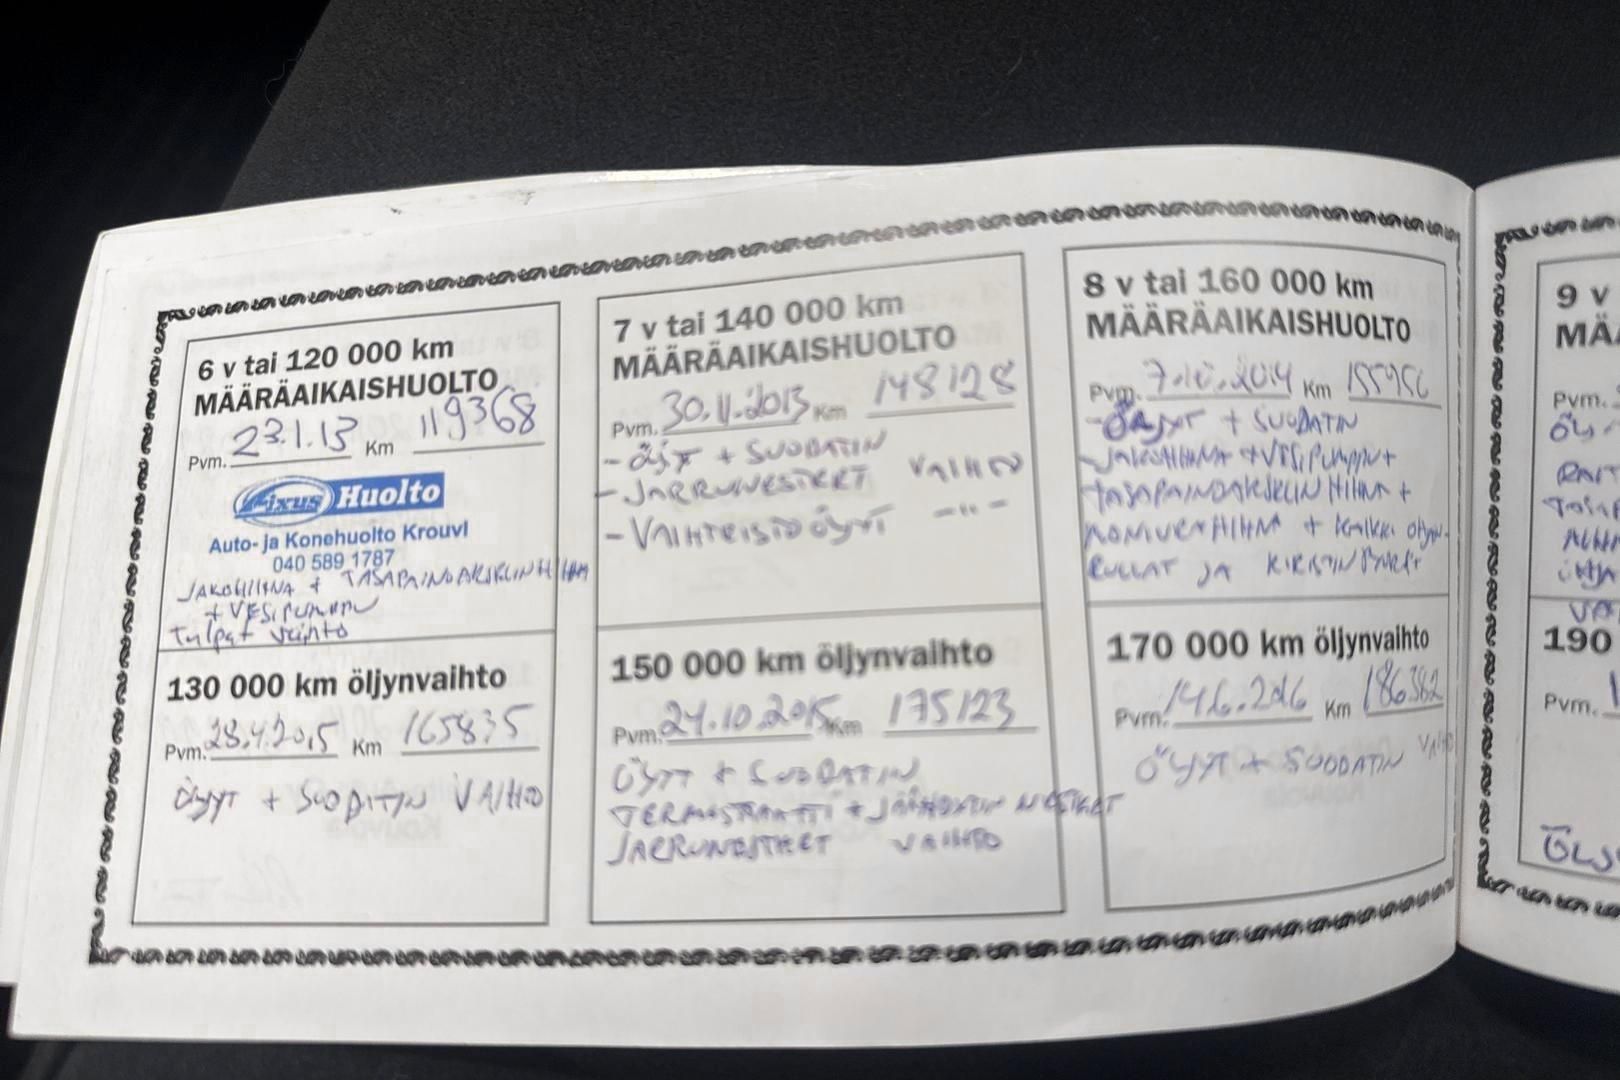 6 v tai 120 000 km
MÄÄRÄAIKAISHUOLTO
Pvm. 23.1.13 Km 119368
Fixus Huolto
Auto- ja Konehuolto Krouvi
040 589 1787
JAKOHIHNA + TASAPAINOAKSELIN HIHNA
+ VESIPUMPPU
Tulpat vaihto
130 000 km öljynvaihto
Pvm. 28.4.2015 Km 165835
ÖLJYT + SUODATIN VAIHTO
7 v tai 140 000 km
MÄÄRÄAIKAISHUOLTO
Pvm. 30.11.2013 Km 148128
- ÖLJYT + SUODATIN
- JARRUNESTEET VAIHTO
- VAIHTEISTOÖLJYT -"-
150 000 km öljynvaihto
Pvm. 24.10.2015 Km 175123
ÖLJYT + SUODATIN
TERMOSTAATTI + JÄÄHDYTIN NESTEET
JARRUNESTEET VAIHTO
8 v tai 160 000 km
MÄÄRÄAIKAISHUOLTO
Pvm. 7.10.2014 Km 155956
- ÖLJYT + SUODATIN
- JAKOHIHNA + VESIPUMPPU +
TASAPAINOAKSELIN HIHNA +
MONIURAHIHNA + kaikki ohjain-
RULLAT JA KIRISTIN
170 000 km öljynvaihto
Pvm. 14.6.2016 Km 186382
ÖLJYT + SUODATIN VAIHTO
9 v
MÄÄ
Pvm.
190
Pvm.